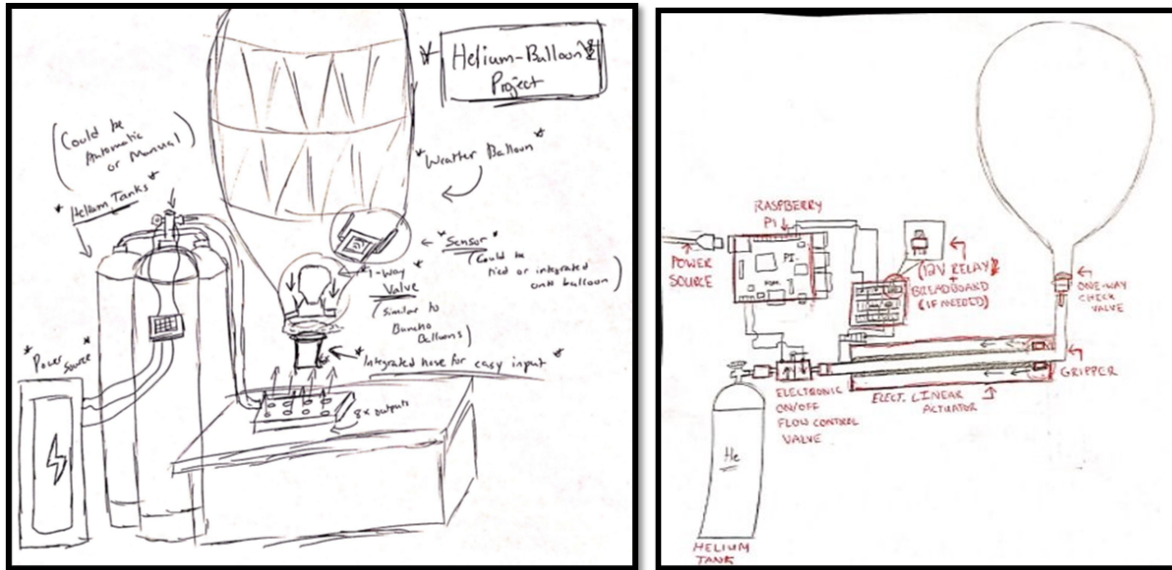 Helium-Balloon
Project
(Could be
Automatic
or Manual)
Helium Tanks
Weather Balloon
Sensor
(Could be
tied or integrated
onto balloon)
1-Way
Valve
(Similar to
Buncho
Balloons)
Power
Source
Integrated hose for easy input
8x outputs
RASPBERRY
PI
PI
POWER
SOURCE
(12V RELAY
+
BREADBOARD
(IF NEEDED)
ONE-WAY
CHECK
VALVE
GRIPPER
ELECT. LINEAR
ACTUATOR
ELECTRONIC
ON/OFF
FLOW CONTROL
VALVE
He
HELIUM
TANK